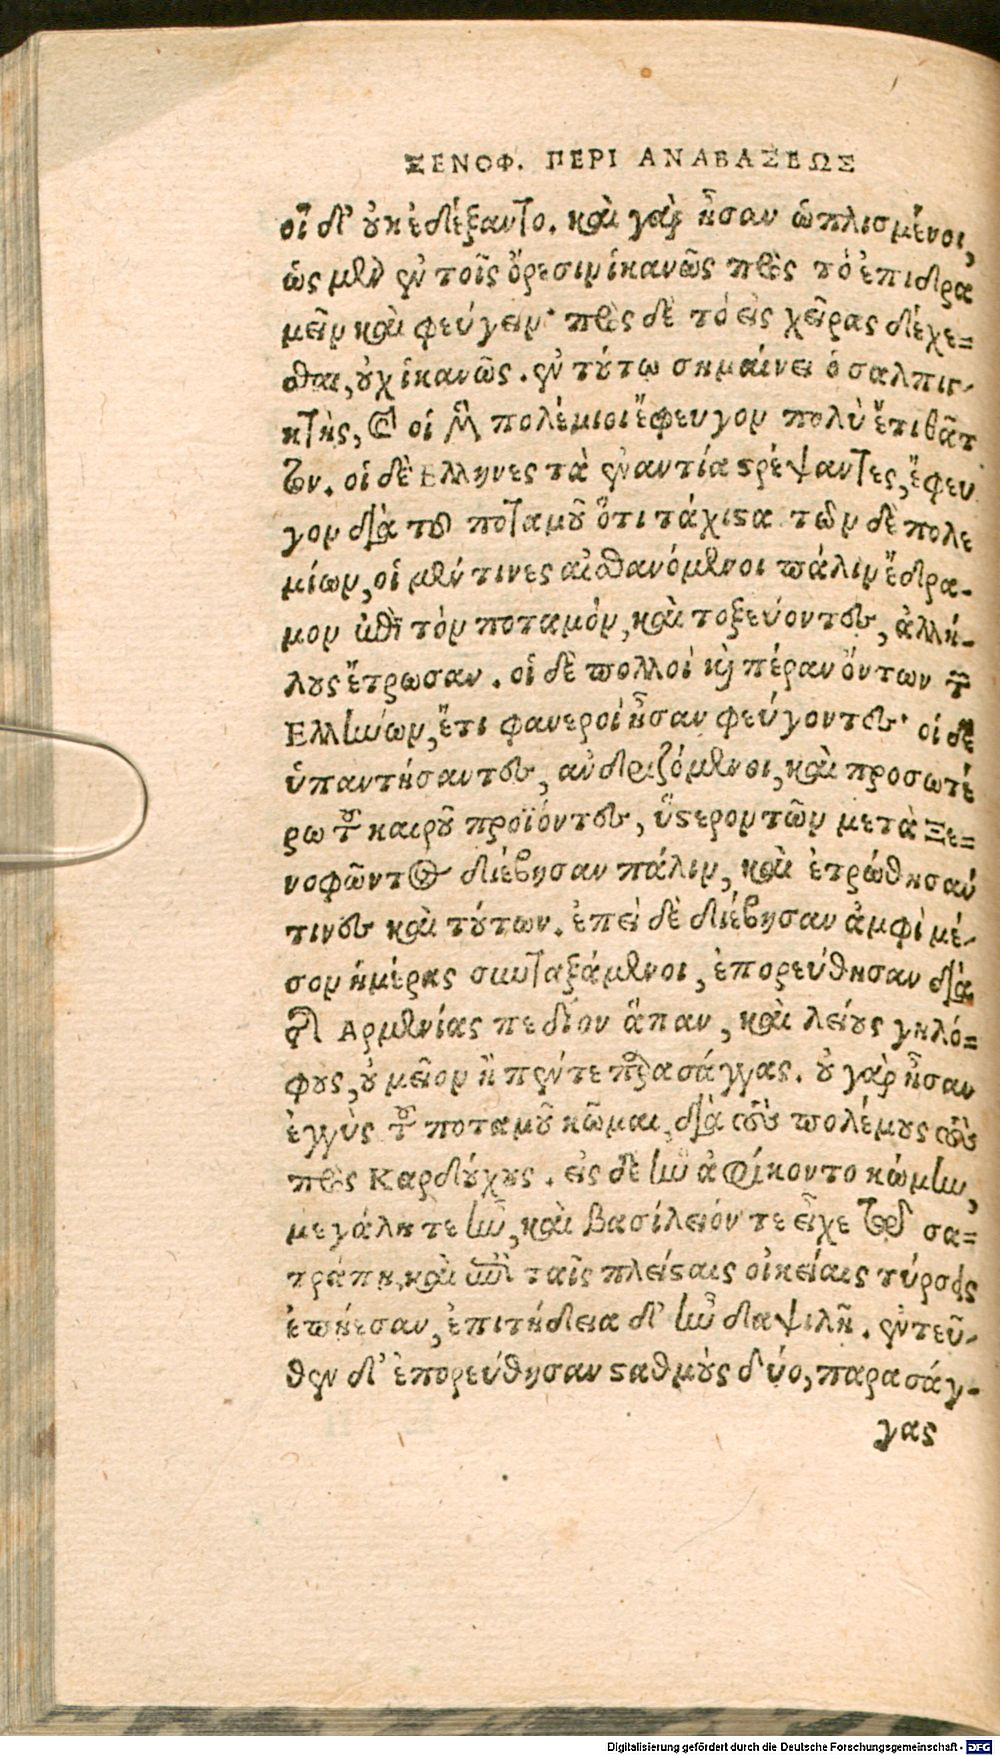 ΞΕΝΟΦ. ΠΕΡΙ ΑΝΑΒΑΣΕΩΣ
οἳ δ' οὐκ ἐδέξαντο. καὶ γὰρ ἦσαν ὡπλισμένοι,
ὡς μὲν ἐν τοῖς ὄρεσιν ἱκανῶς πρὸς τὸ ἐπιδρα
μεῖν καὶ φεύγειν· πρὸς δὲ τὸ εἰς χεῖρας δέχε=
σθαι, οὐχ ἱκανῶς. ἐν τούτω σημαίνει ὁ σαλπιγ-
κτὴς, καὶ οἱ μὲν πολέμιοι ἔφευγον πολὺ ἔτι θᾶτ
τον. οἱ δὲ Ελληνες τὰ ἐναντία στρέψαντες, ἔφευ
γον διὰ τοῦ ποταμοῦ ὅτι τάχιστα. τῶν δὲ πολε
μίων, οἱ μέν τινες αἰσθανόμενοι πάλιν ἔδρα-
μον ἐπὶ τὸν ποταμὸν, καὶ τοξεύοντες, ἀλλή-
λους ἔτρωσαν. οἱ δὲ πολλοὶ καὶ πέραν ὄντων τῶν
Ελλήνων, ἔτι φανεροὶ ἦσαν φεύγοντες· οἱ δὲ
ὑπαντήσαντες, ἀνδριζόμενοι, καὶ προσωτέ
ρω τοῦ καιροῦ προϊόντες, ὕστερον τῶν μετὰ Ξε=
νοφῶντος διέβησαν πάλιν, καὶ ἐτρώθησαν
τινες καὶ τούτων. ἐπεὶ δὲ διέβησαν ἀμφὶ μέ-
σον ἡμέρης συνταξάμενοι, ἐπορεύθησαν διὰ
τῆς Αρμενίας πεδίον ἅπαν, καὶ λείους γηλό=
φους, οὐ μεῖον ἢ πέντε παρασάγγας. οὐ γὰρ ἦσαν
ἐγγὺς τοῦ ποταμοῦ κῶμαι, διὰ τοὺς πολέμους τοὺς
πρὸς Καρδούχους. εἰς δὲ ἣν ἀφίκοντο κώμην,
μεγάλη τε ἦν, καὶ βασίλειόν τε εἶχε τῷ σα=
τράπη, καὶ ἐπὶ ταῖς πλείσταις οἰκείαις τύρσεις
ἐπήεσαν, ἐπιτήδεια δ' ἦν δαψιλῆ. ἐντεῦ-
θεν δ' ἐπορεύθησαν σταθμοὺς δύο, παρασάγ-
γας
Digitalisierung gefördert durch die Deutsche Forschungsgemeinschaft - DFG